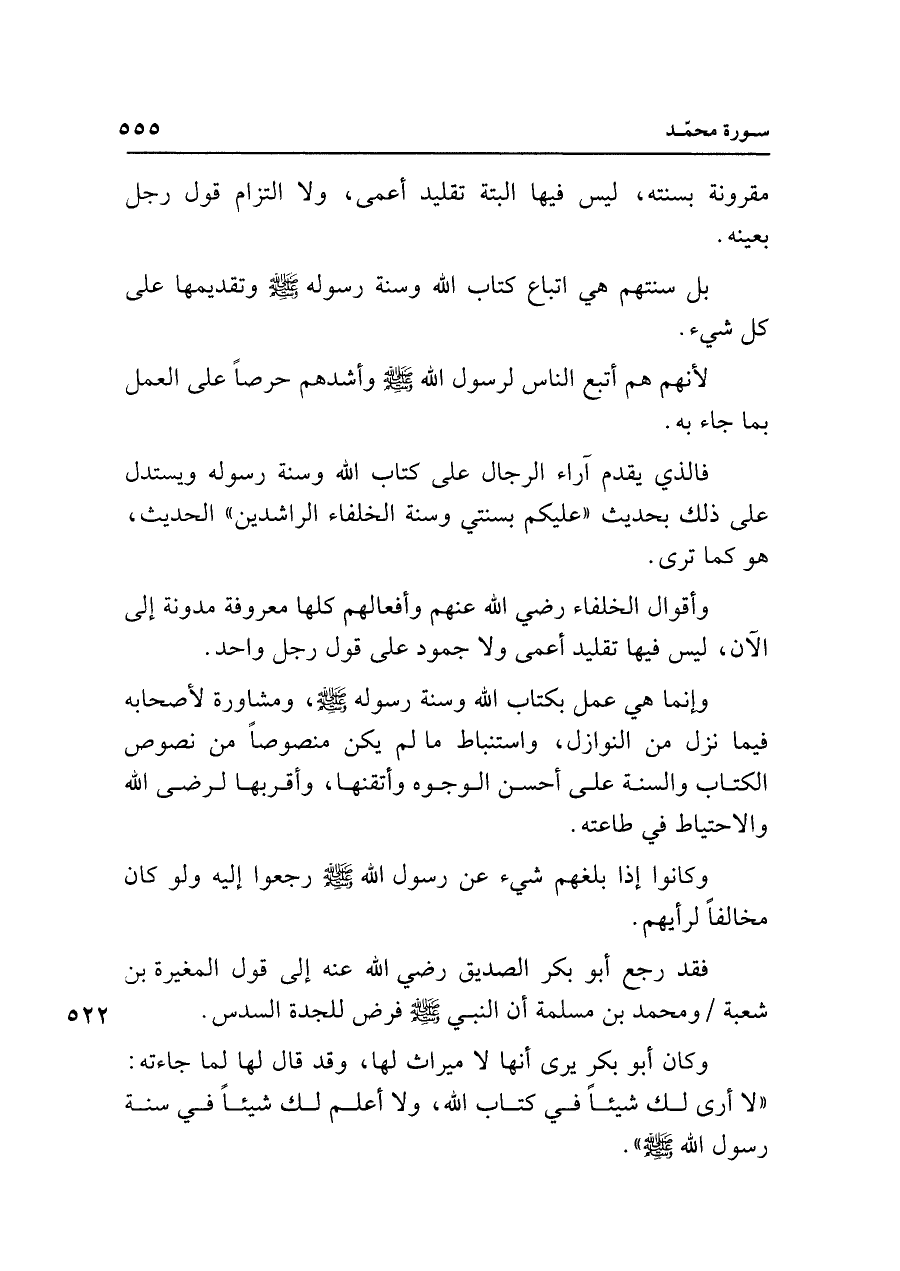 سورة محمّد ٥٥٥
مقرونة بسنته، ليس فيها البتة تقليد أعمى، ولا التزام قول رجل
بعينه.
بل سنتهم هي اتباع كتاب الله وسنة رسوله ﷺ وتقديمها على
كل شيء.
لأنهم هم أتبع الناس لرسول الله ﷺ وأشدهم حرصاً على العمل
بما جاء به.
فالذي يقدم آراء الرجال على كتاب الله وسنة رسوله ويستدل
على ذلك بحديث «عليكم بسنتي وسنة الخلفاء الراشدين» الحديث،
هو كما ترى.
وأقوال الخلفاء رضي الله عنهم وأفعالهم كلها معروفة مدونة إلى
الآن، ليس فيها تقليد أعمى ولا جمود على قول رجل واحد.
وإنما هي عمل بكتاب الله وسنة رسوله ﷺ، ومشاورة لأصحابه
فيما نزل من النوازل، واستنباط ما لم يكن منصوصاً من نصوص
الكتاب والسنة على أحسن الوجوه وأتقنها، وأقربها لرضى الله
والاحتياط في طاعته.
وكانوا إذا بلغهم شيء عن رسول الله ﷺ رجعوا إليه ولو كان
مخالفاً لرأيهم.
فقد رجع أبو بكر الصديق رضي الله عنه إلى قول المغيرة بن
شعبة / ومحمد بن مسلمة أن النبي ﷺ فرض للجدة السدس. ٥٢٢
وكان أبو بكر يرى أنها لا ميراث لها، وقد قال لها لما جاءته:
«لا أرى لك شيئاً في كتاب الله، ولا أعلم لك شيئاً في سنة
رسول الله ﷺ».